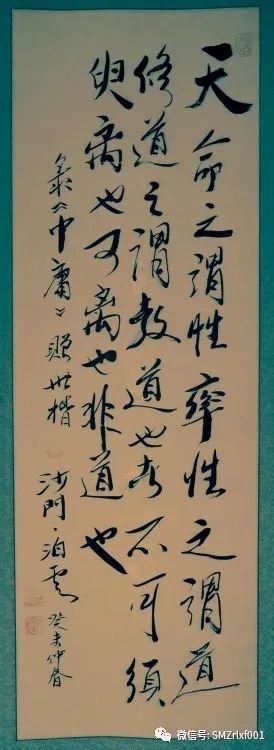 天命之謂性率性之謂道
修道之謂教道也者不可須
臾离也可离也非道也
录《中庸》贈世楷
沙门·泊雲 癸未仲春
微信号: SMZrlxf001